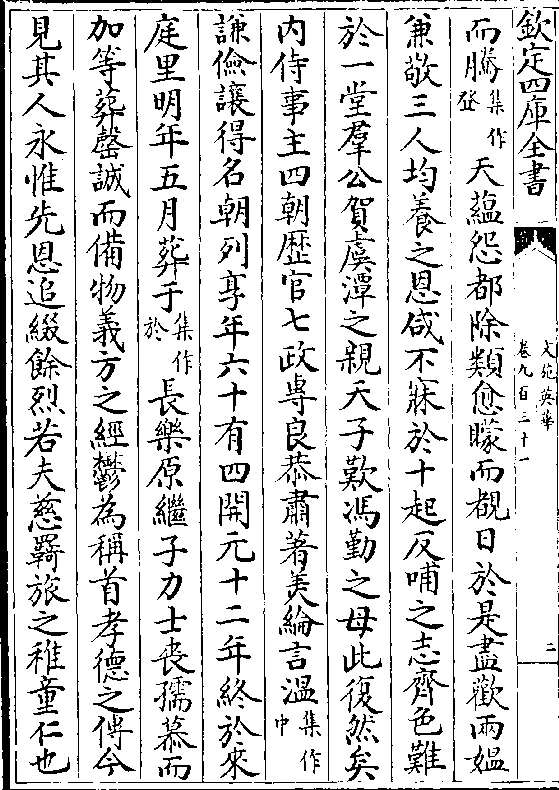 欽定四庫全書
文苑英華
卷九百三十一
二
而騰集作登天蘊怨都除類愈矇而覩日於是盡歡兩媼
兼敬三人均養之恩咸不寐於十起反哺之志齊色難
於一堂羣公賀虞潭之親天子歎馮勤之母此復然矣
内侍事主四朝歴官七政専良恭肅著美綸言温集作中
謙儉讓得名朝列享年六十有四開元十二年終於來
庭里明年五月葬于集作於長樂原繼子力士喪孺慕而
加等葬罄誠而備物義方之經鬱為稱首孝德之傳今
見其人永惟先恩追綴餘烈若夫慈羇旅之稚童仁也